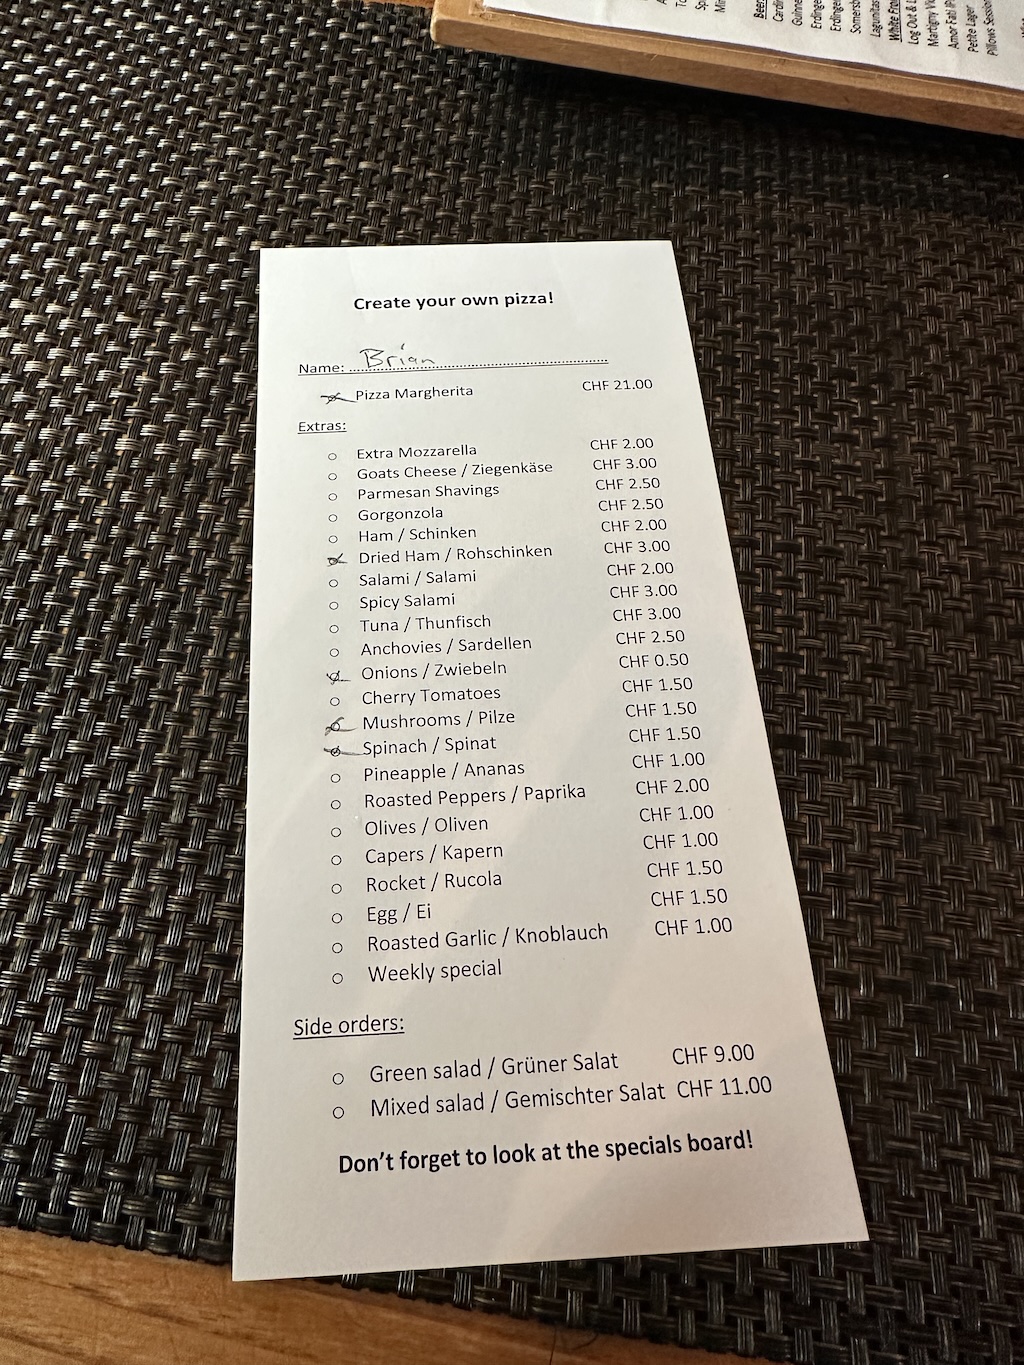 Create your own pizza!
Name: Brian
Pizza Margherita CHF 21.00
Extras:
Extra Mozzarella CHF 2.00
Goats Cheese / Ziegenkäse CHF 3.00
Parmesan Shavings CHF 2.50
Gorgonzola CHF 2.50
Ham / Schinken CHF 2.00
Dried Ham / Rohschinken CHF 3.00
Salami / Salami CHF 2.00
Spicy Salami CHF 3.00
Tuna / Thunfisch CHF 3.00
Anchovies / Sardellen CHF 2.50
Onions / Zwiebeln CHF 0.50
Cherry Tomatoes CHF 1.50
Mushrooms / Pilze CHF 1.50
Spinach / Spinat CHF 1.50
Pineapple / Ananas CHF 1.00
Roasted Peppers / Paprika CHF 2.00
Olives / Oliven CHF 1.00
Capers / Kapern CHF 1.00
Rocket / Rucola CHF 1.50
Egg / Ei CHF 1.50
Roasted Garlic / Knoblauch CHF 1.00
Weekly special
Side orders:
Green salad / Grüner Salat CHF 9.00
Mixed salad / Gemischter Salat CHF 11.00
Don't forget to look at the specials board!
Petite Lager